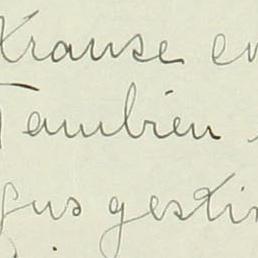 Krause en
Tambien
gus gestin